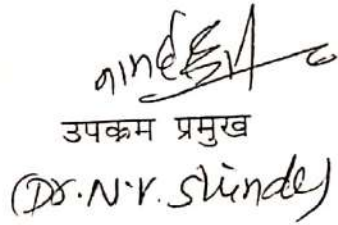 उपक्रम प्रमुख
(Dr. N.V. Shinde)